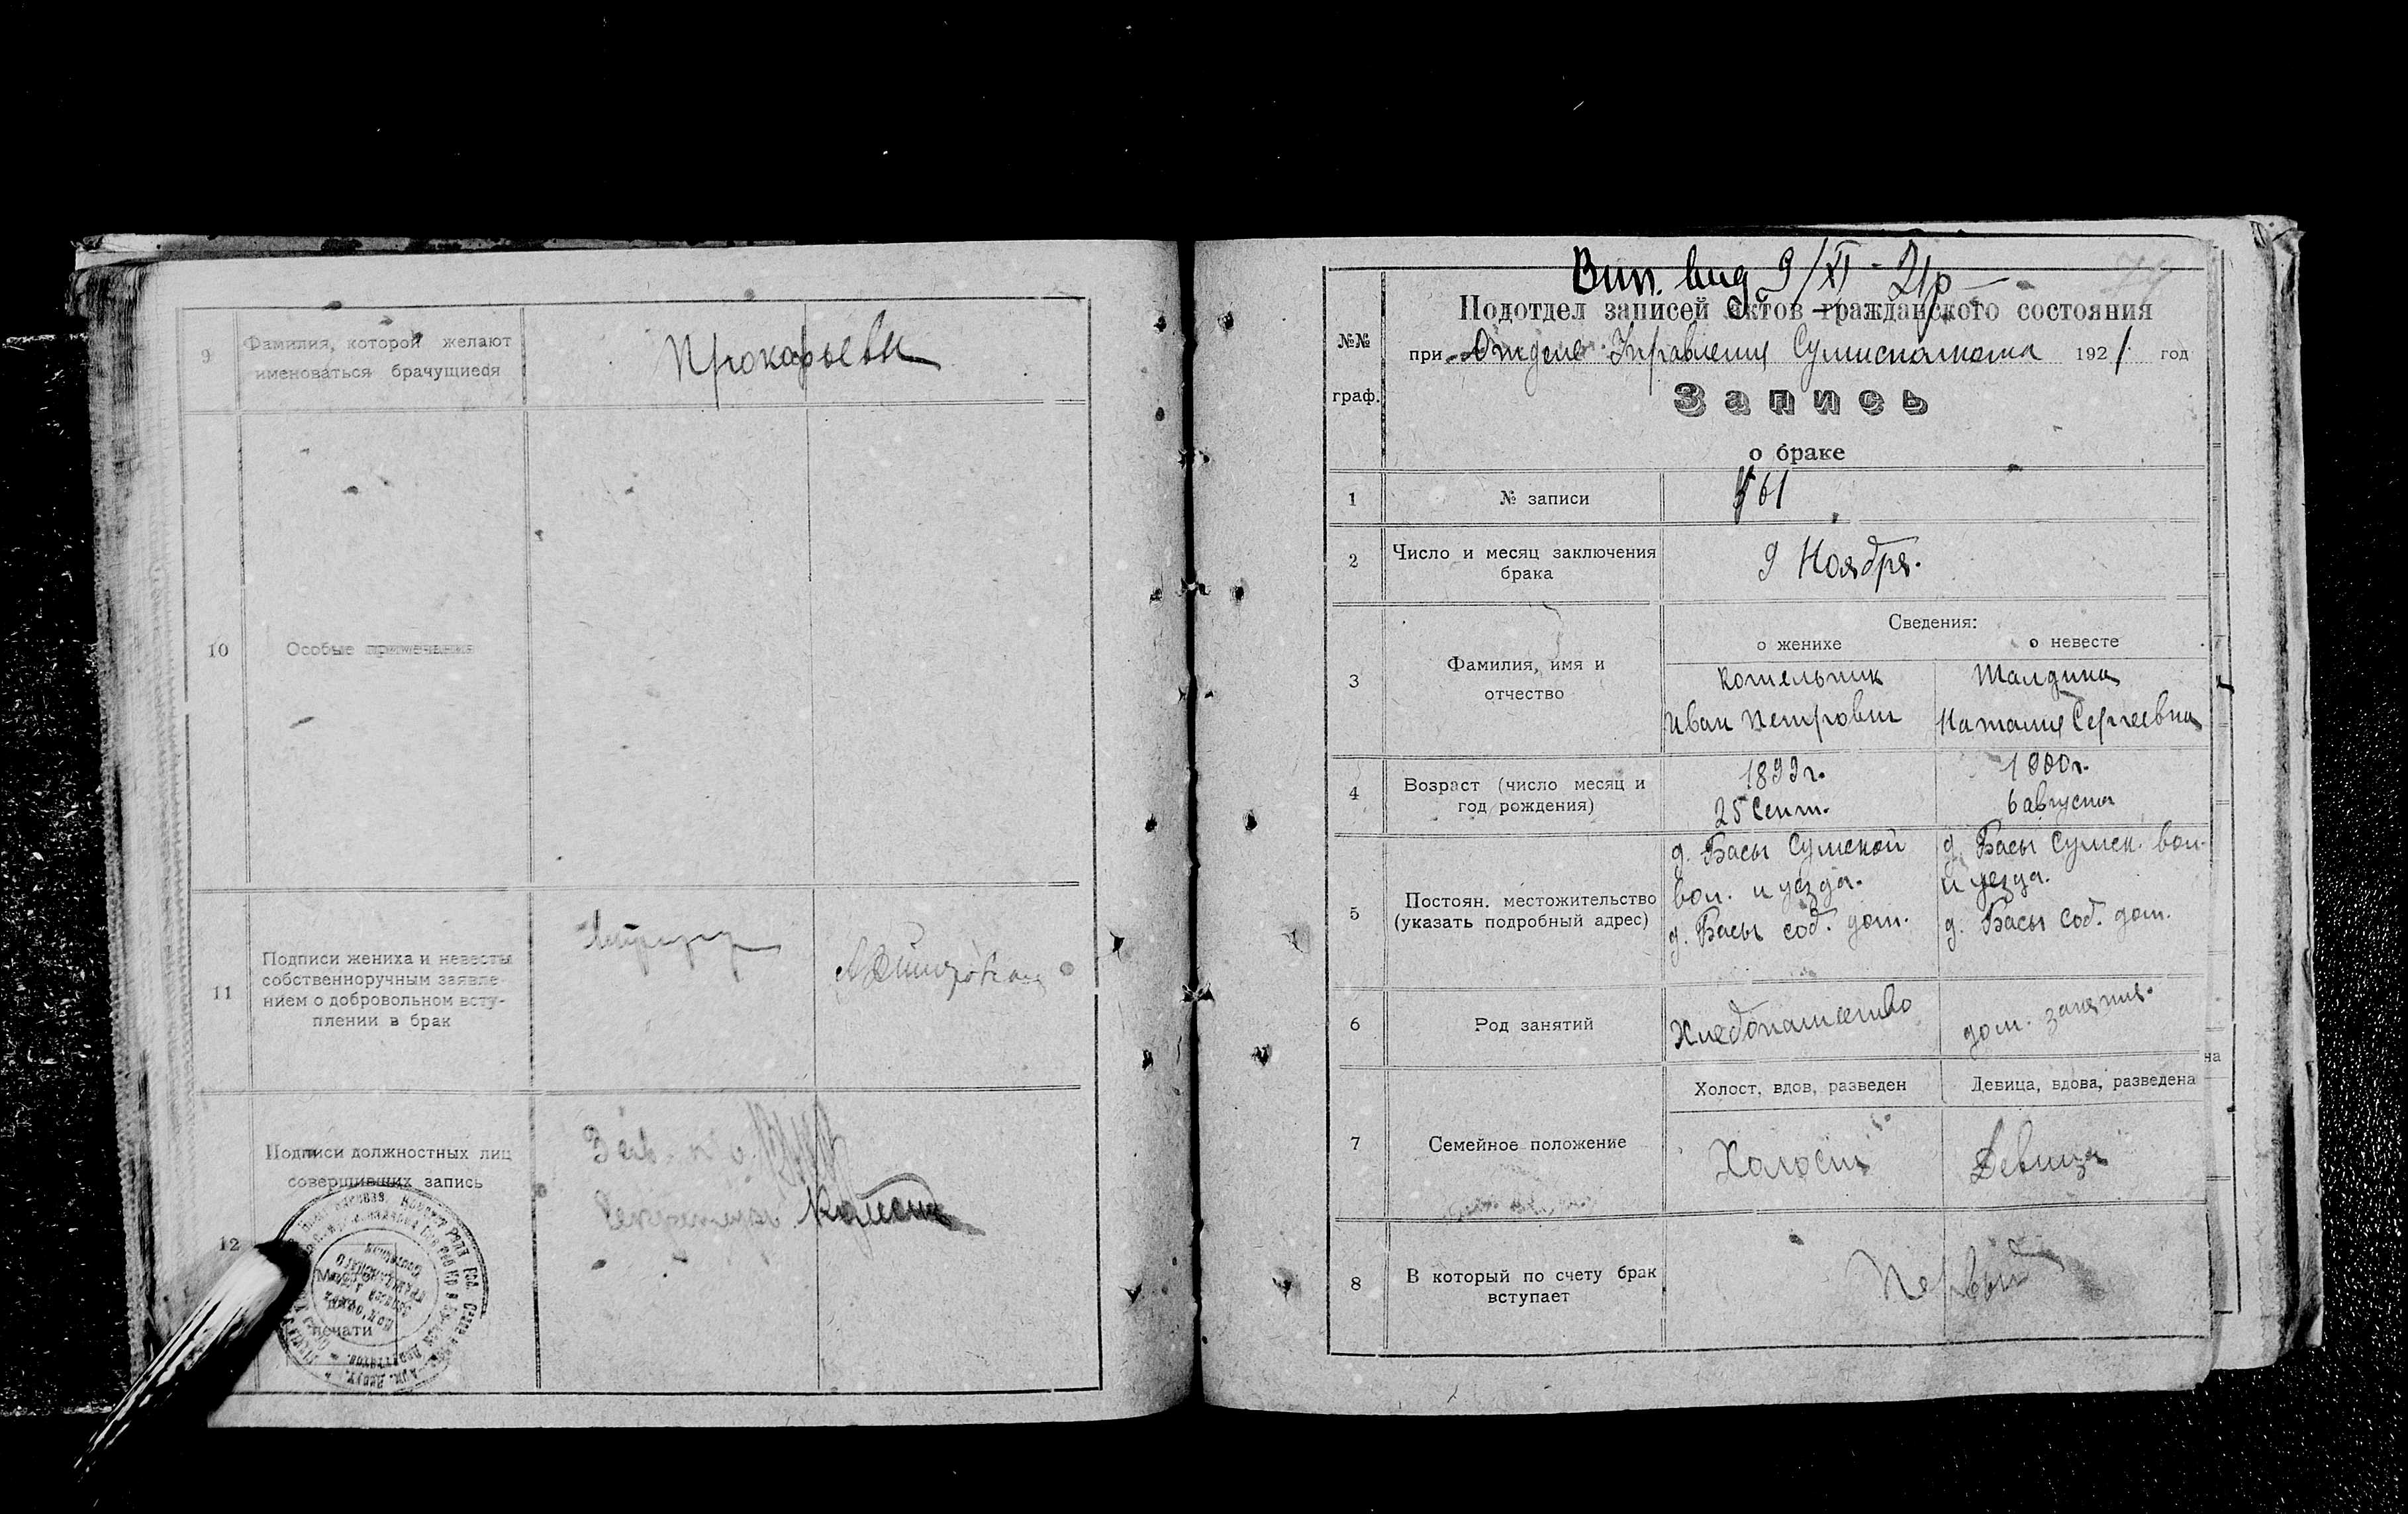 9
Фамилия, которой желают
именоваться брачущиеся
Прокофьевы
10
Особые примечания
11
Подписи жениха и невесты
собственноручным заявле-
нием о добровольном всту-
плении в брак
12
Подписи должностных лиц
совершивших запись
Секретарь
Место
печати
Вип. вид 9/XI - 21р
№№
граф.
Подотдел записей актов гражданского состояния
при Отделе Управления Сумисполкома 1921 год
Запись
о браке
1
№ записи
461
2
Число и месяц заключения
брака
9 Ноября.
3
Фамилия, имя и
отчество
Сведения:
о женихе
о невесте
Котельник
Иван Петрович
Шалдина
Наталия Сергеевна
4
Возраст (число месяц и
год рождения)
1899г.
25 Сент.
1900г.
6 августа
5
Постоян. местожительство
(указать подробный адрес)
д. Басы Сумской
вол. и уезда.
д. Басы соб. дом.
д. Басы Сумск. вол.
и уезда.
д. Басы Соб. дом.
6
Род занятий
Хлебопашество
дом. занятия.
7
Семейное положение
Холост, вдов, разведен
Девица, вдова, разведена
Холост
Девица
8
В который по счету брак
вступает
Первый